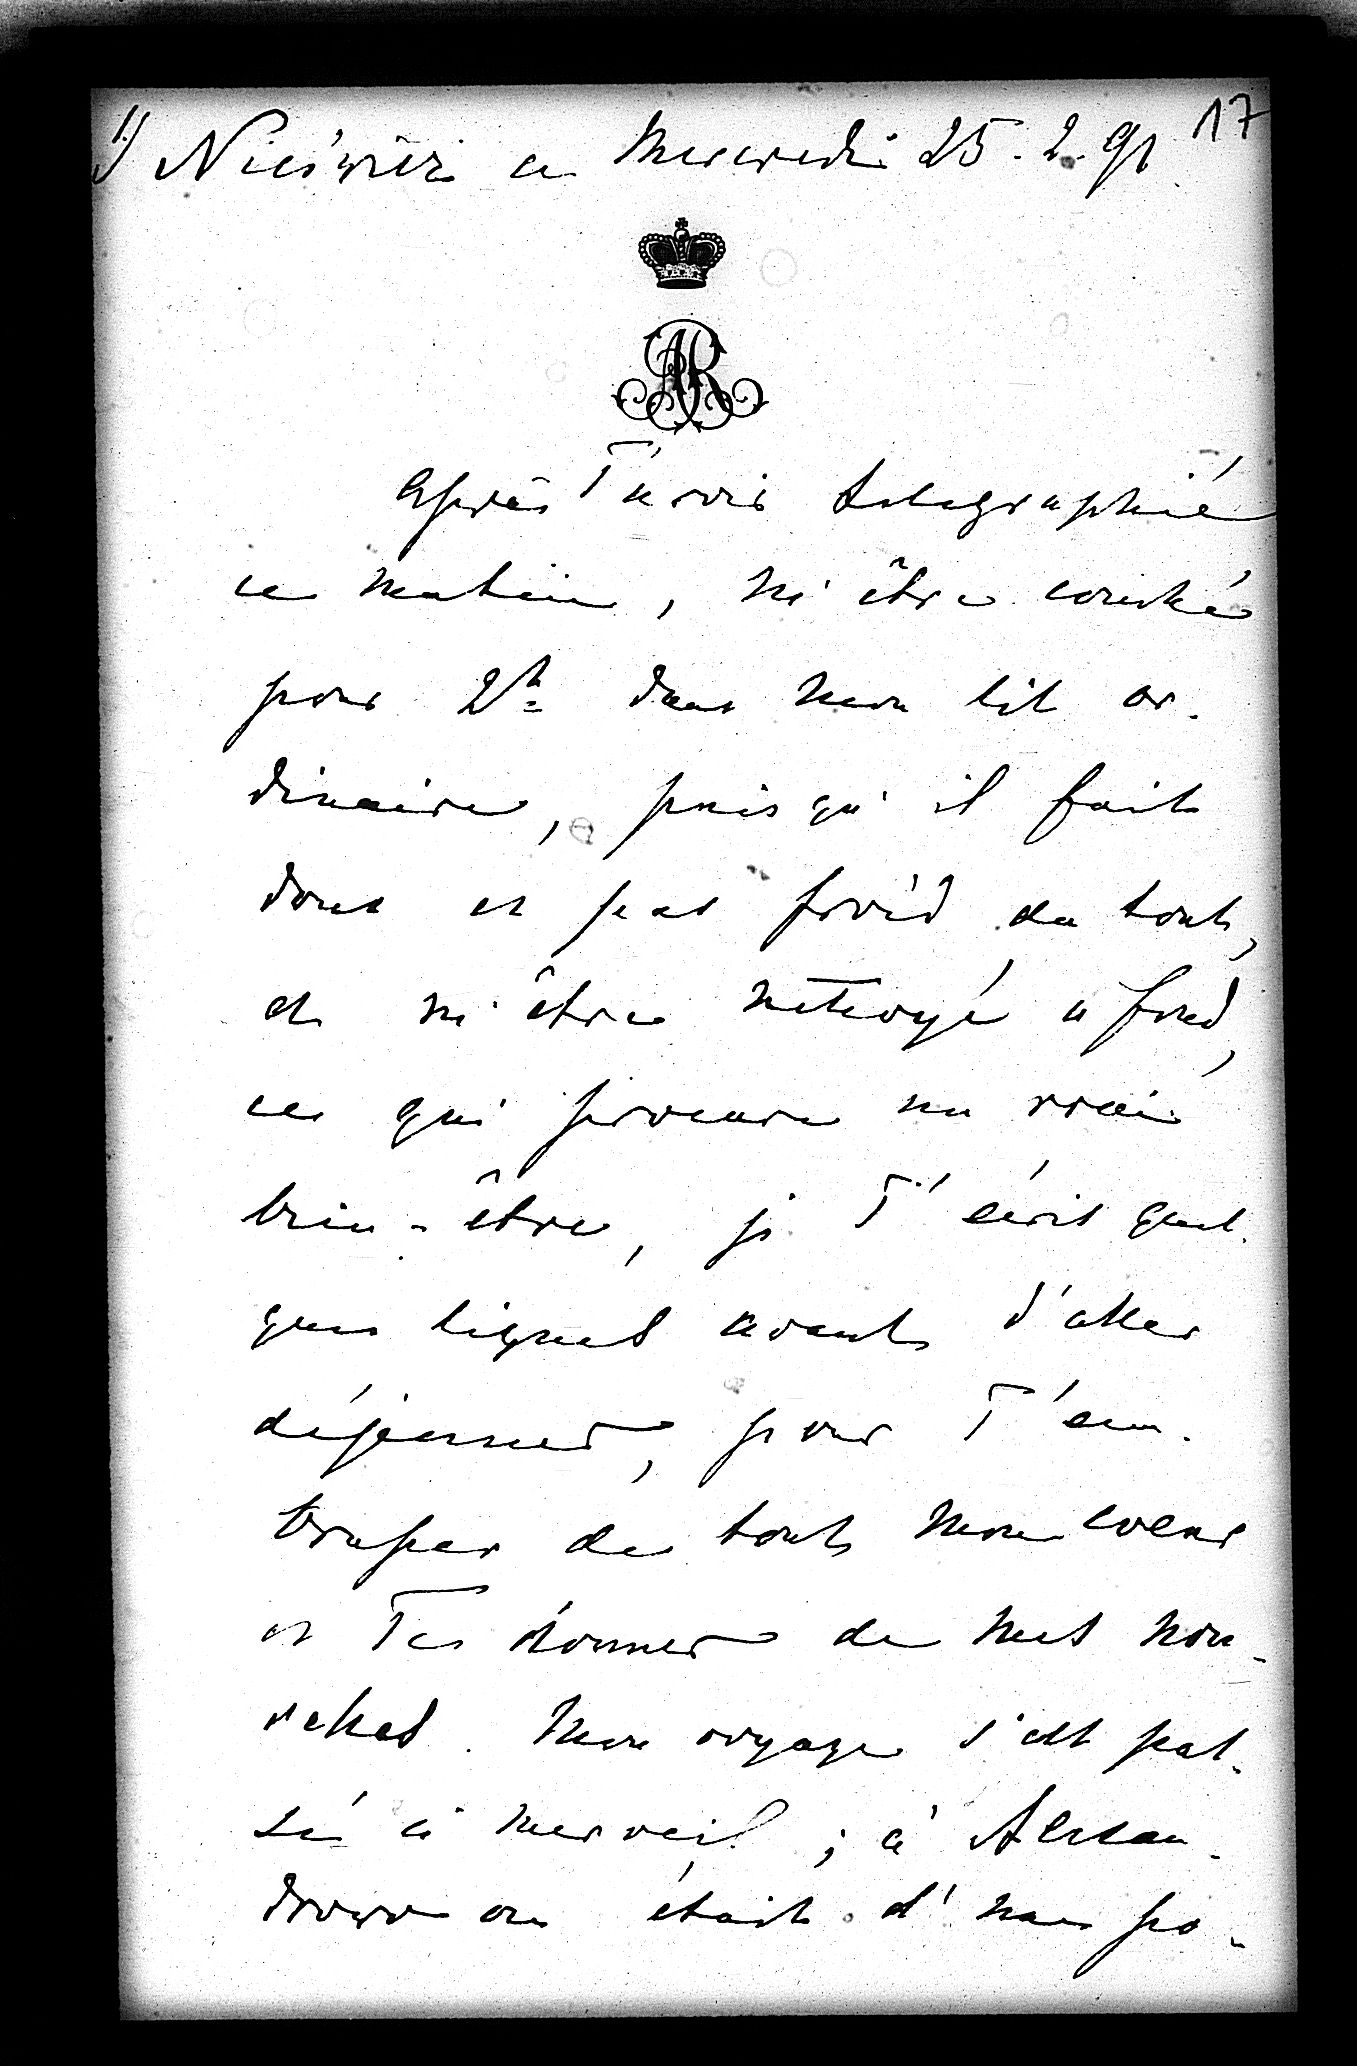 1) Nieśwież ce Mercredi 25.2.91 17
AR
Après T'avoir telegraphié
ce matin, m'être couché
pour 2h dans mon lit or-
dinaire, puisqu'il fait
doux et pas froid du tout,
et m'être nettoyé a fond,
ce qui procure un vrai
bien-être, je T'écris quel-
ques lignes avant d'aller
déjeuner, pour T'em-
brasser de tout mon coeur
et Te donner de mes nou-
velles. Mon voyage s'est pas-
sé à merveil; à Alexan-
drowo on était d'une po-